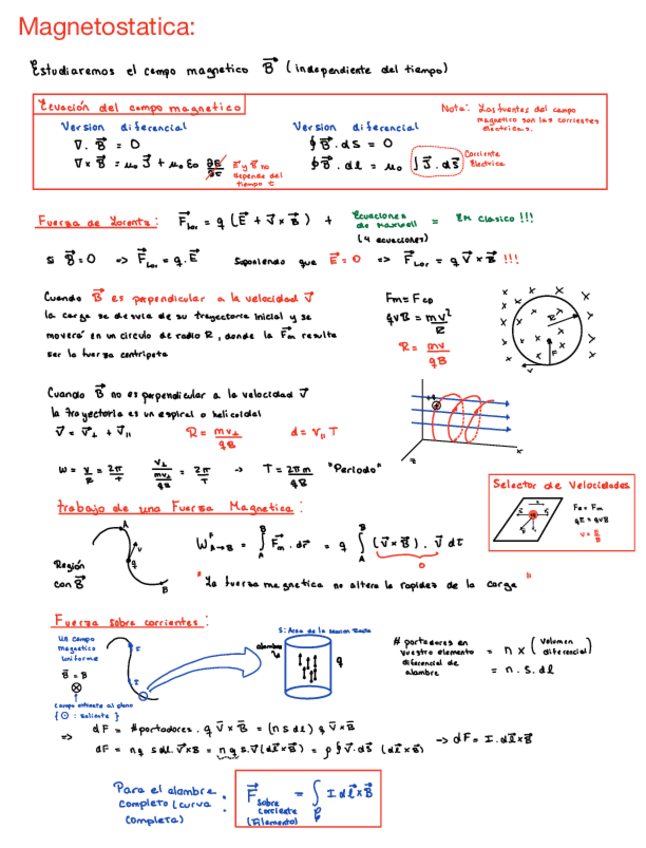 Magnetostatica:
Estudiaremos el campo magnetico B⃗ (independiente del tiempo)
Ecuación del campo magnetico
Nota: Las fuentes del campo
magnetico son las corrientes
electricas.
Version diferencial
Version diferencial
∇ . B⃗ = 0
∮ B⃗ . ds = 0
∇ × B⃗ = μ₀ J⃗ + μ₀ ε₀ ∂E/∂t
E⃗ y B⃗ no
depende del
tiempo t
∮ B⃗ . dl = μ₀ ∫ J⃗ . ds⃗
Corriente
Electrica
Fuerza de Lorentz: F⃗Lor = q (E⃗ + v⃗ × B⃗) +
Ecuaciones
de Maxwell
(4 ecuaciones)
= EM Clasico !!!
Si B⃗ = 0 => F⃗Lor = q . E⃗
Suponiendo que E⃗ = 0 => F⃗Lor = q v⃗ × B⃗ !!!
Cuando B⃗ es perpendicular a la velocidad v⃗
la carga se desvia de su trayectoria inicial y se
moverá en un circulo de radio R, donde la F⃗m resulta
ser la fuerza centripeta
Fm = Fcp
qvB = mv²/R
R = mv/qB
R
F
v
Cuando B⃗ no es perpendicular a la velocidad v⃗
la trayectoria es un espiral o helicoidal
v⃗ = v⃗⊥ + v⃗||
R = mv⊥/qB
d = v|| T
W = v/R = 2π/T
v⊥/(mv⊥/qB) = 2π/T
→ T = 2πm/qB
"Periodo"
+q
x
z
Selector de Velocidades
Fe = Fm
qE = qvB
v = E/B
trabajo de una Fuerza Magnetica:
A
v
q
B
Región
con B⃗
W^F A→B = ∫ᴬᴮ F⃗m . dr⃗ = q ∫ᴬᴮ (v⃗ × B⃗) . v⃗ dt
0
" La fuerza magnetica no altera la rapidez de la carga "
Fuerza sobre corrientes:
Un campo
magnetico
uniforme
B⃗ = B
⊗
Campo entrante al plano
{ ⊙ : saliente }
S
I
S: Area de la seccion Recta
alambre
q
# portadores en
nuestro elemento
diferencial de
alambre
= n × (Volumen diferencial)
= n . S . dl
=> dF = #portadores . q v⃗ × B⃗ = (n s dl) q v⃗ × B⃗
dF = nq s dl . v⃗ × B⃗ = n q s . v (dl⃗ × B⃗) = ρ ∮ v⃗ . ds⃗ (dl⃗ × B⃗)
→ dF = I . dl⃗ × B⃗
Para el alambre
completo (curva
completa)
:
F⃗ sobre
corriente
(Filamento)
= ∫ I dl⃗ × B⃗